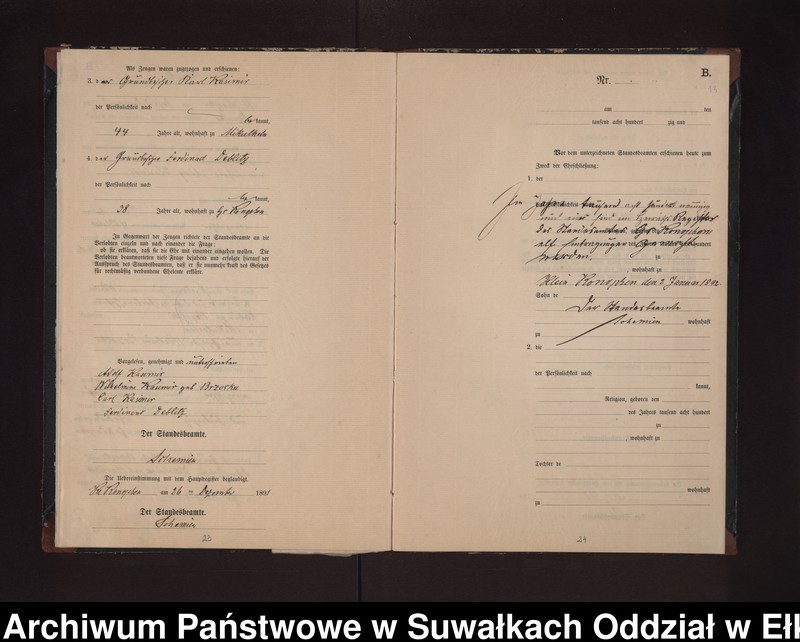 Als Zeugen waren zugezogen und erschienen:
3. der Grundbesitzer Karl Kasimir
der Persönlichkeit nach
be kannt,
44 Jahre alt, wohnhaft zu
4. der Grundbesitzer Ferdinand Deblitz
der Persönlichkeit nach
be kannt,
38 Jahre alt, wohnhaft zu Gr Konopken
In Gegenwart der Zeugen richtete der Standesbeamte an die
Verlobten einzeln und nach einander die Frage:
ob sie erklären, daß sie die Ehe mit einander eingehen wollen. Die
Verlobten beantworteten diese Frage bejahend und erfolgte hierauf der
Ausspruch des Standesbeamten, daß er sie nunmehr kraft des Gesetzes
für rechtmäßig verbundene Eheleute erkläre.
Vorgelesen, genehmigt und unterschrieben
Adolf Kasimir
Wilhelmine Kasimir geb Brzoska
Carl Kasimir
Ferdinand Deblitz
Der Standesbeamte.
Die Uebereinstimmung mit dem Hauptregister beglaubigt.
Gr Konopken am 26 ten Dezember 1891
Der Standesbeamte.
23
B.
Nr.
am ten
tausend acht hundert zig und
Vor dem unterzeichneten Standesbeamten erschienen heute zum
Zweck der Eheschließung:
1. der
Im Jahre tausend acht hundert neunzig
und eins sind im Heirats Register
des Standesamtes Gr. Konopken
elf Eintragungen gemacht
worden. zu
, wohnhaft zu
Klein Konopken den 2 Januar 1892
Sohn de
Der Standesbeamte
wohnhaft
zu
2. die
der Persönlichkeit nach
kannt,
Religion, geboren den
des Jahres tausend acht hundert
zu
, wohnhaft zu
Tochter de
wohnhaft
zu
24
Archiwum Państwowe w Suwałkach Oddział w Eł